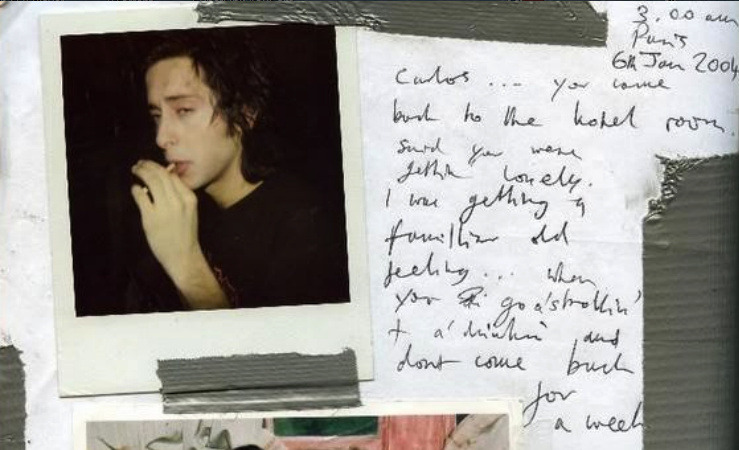 3.00 am
Paris
6th Jan 2004
Carlos ... you came
back to the hotel room.
said you were
gettin lonely.
I was getting a
familiar old
feeling... when
you go a'strollin'
+ a'drinkin and
dont come back
for
a week